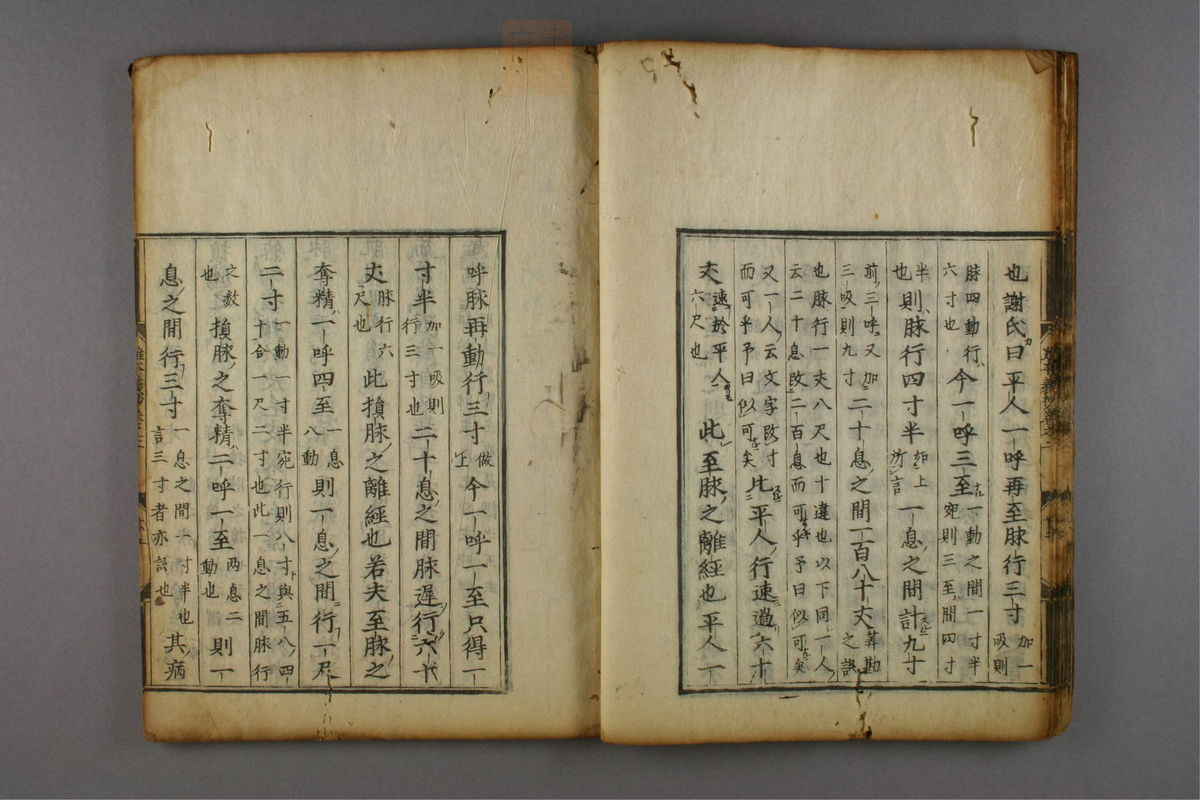 也謝氏曰平人一呼再至脉行三寸加一吸則
脉四動行六寸也今一呼三至一動之間一寸半宛則三至間四寸
半也則脉行四寸半如上所言一息之間計九寸
前三呼又加三吸則九寸二十息之間一百八十丈算勘之誤
也脉行一丈八尺也十違也以下同一人云二十息改二百息而可乎予曰似可矣
又一人云文字改寸而可乎予曰似可矣比平人行速過六十
丈速於平人六尺也此至脉之離經也平人一
呼脉再動行三寸倣上今一呼一至只得一
寸半加一吸則行三寸也二十息之間脉遲行六十
丈脉行六尺也此損脉之離經也若夫至脉之
奪精一呼四至一息八動則一息之間行一尺
二寸一動一寸半宛行則八寸與五八四十合一尺二寸也此一息之間脉行
之数也損脉之奪精二呼一至两息二動也則一
息之間行三寸一息之間一寸半也言三寸者亦誤也其病